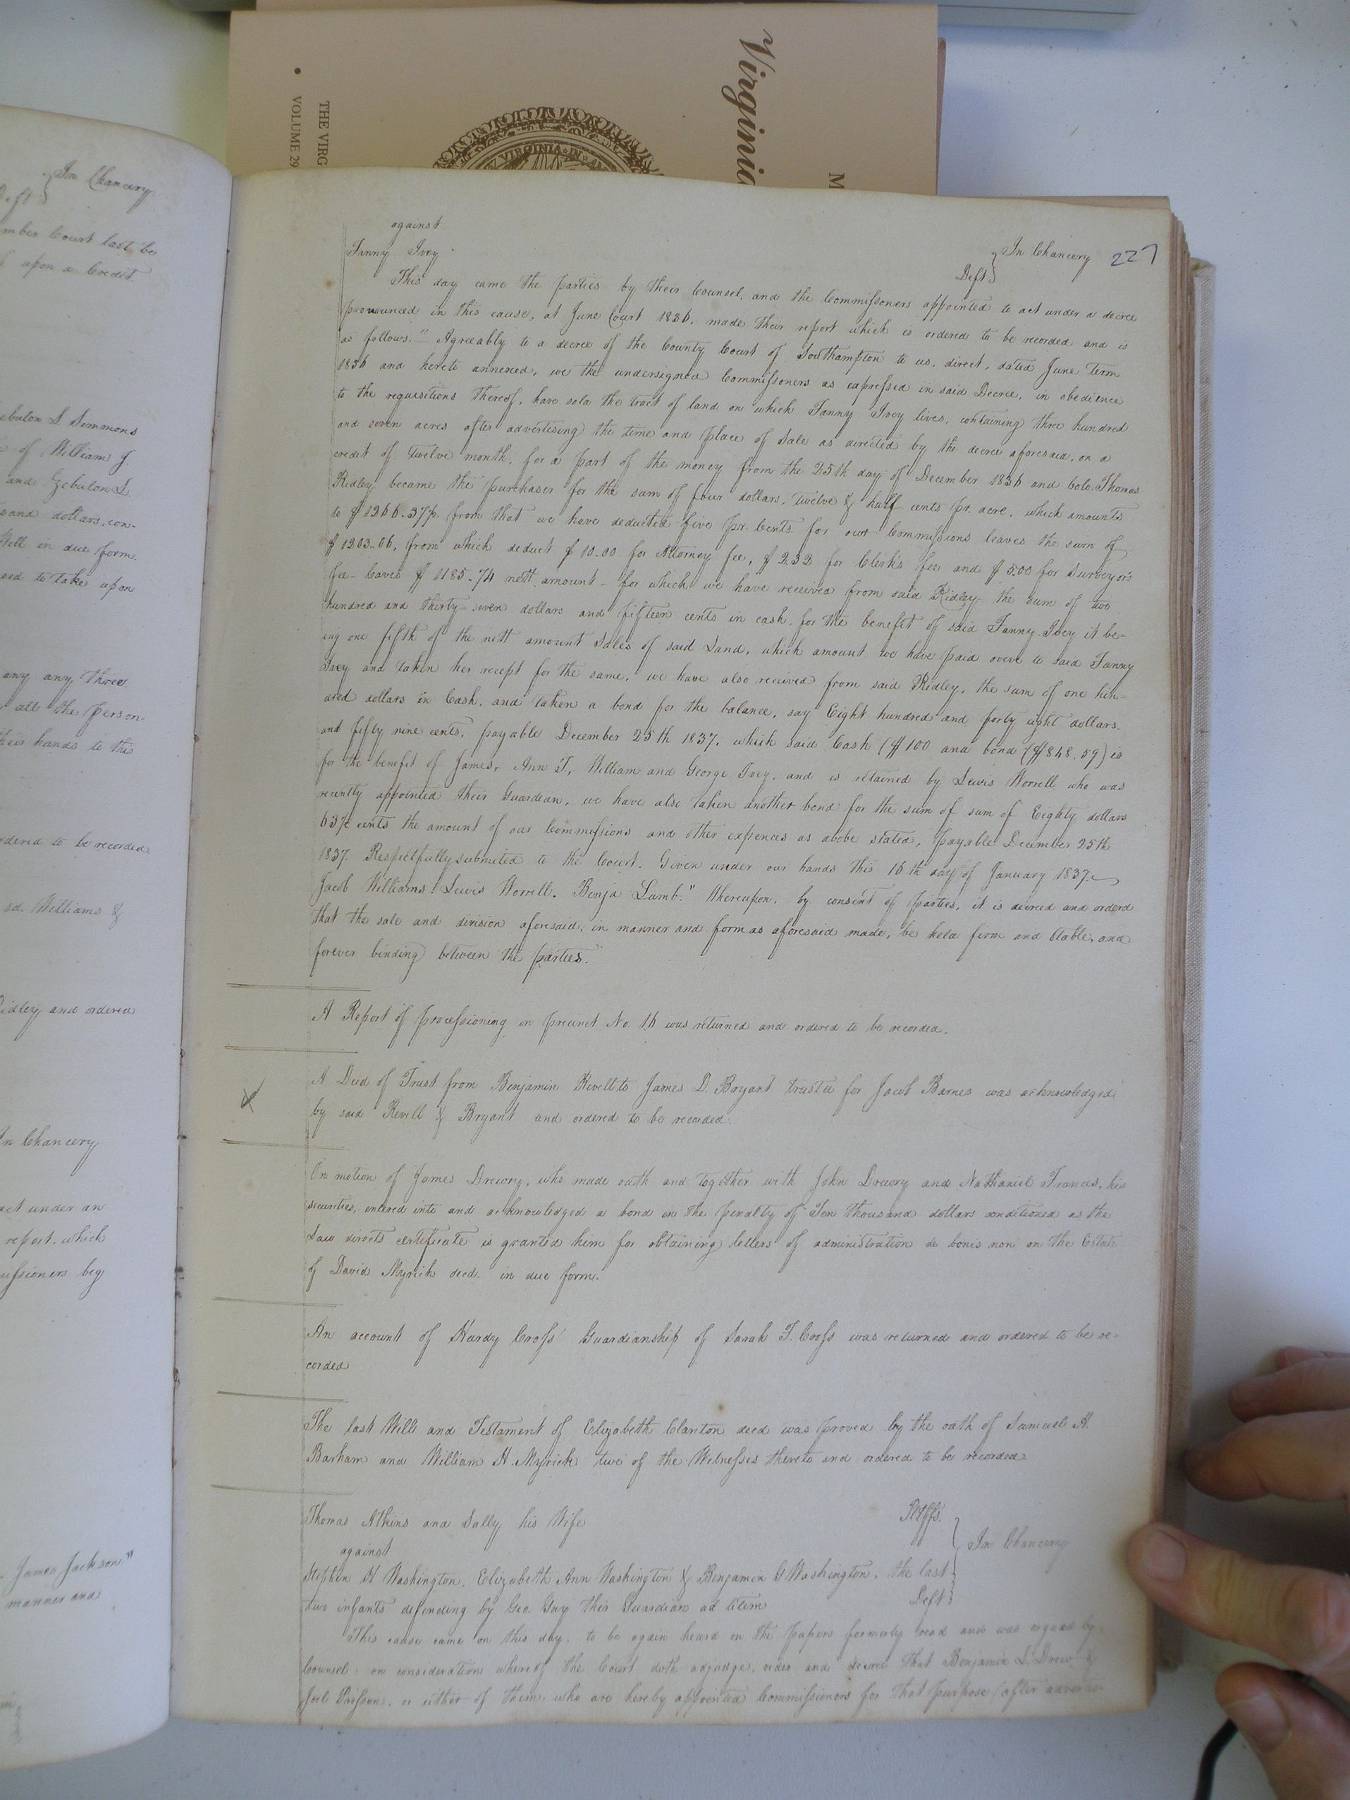 Virginia
M
THE VIRG
VOLUME 29
VIRGINIA IN
In Chancery
Deft
mber Court last be
upon a Credit
ebulon S Simmons
of William J.
and Zebulon S
sand dollars, con-
Will in due form
and to take upon
any any three
all the person
their hands to this
rdered to be recorded
sd. Williams &
Ridley and ordered
In Chancery
act under an
report, which
missioners beg
James Jackson"
manner and
227
against
Fanny Ivey
Deft } In Chancery
This day came the parties by their Counsel, and the Commissioners appointed to act under a decree
pronounced in this cause, at June Court 1836, made their report which is ordered to be recorded and is
as follows. " Agreeably to a decree of the County Court of Southampton to us, direct, dated June Term
1836 and hereto annexed, we the undersigned Commissioners as expressed in said Decree, in obedience
to the requisitions thereof, have sold the tract of land on which Fanny Ivey lives, containing three hundred
and seven acres after advertising the time and place of sale as directed by the decree aforesaid, on a
credit of twelve month, for a part of the money from the 25th day of December 1836 and Colo. Thomas
Ridley became the purchaser for the sum of four dollars, twelve & half cents pr. acre, which amounts
to $1266.37½ from that we have deducted five pr. Cents for our Commissions leaves the sum of
$1203.06, from which deduct $10.00 for Attorney fee, $2.32 for Clerk's fee and $5.00 for Surveyor's
fee - leaves $1185.74 nett amount - for which we have received from said Ridley the sum of two
hundred and thirty seven dollars and fifteen cents in cash, for the benefit of said Fanny Ivey it be-
ing one fifth of the nett amount Sales of said Land, which amount we have paid over to said Fanny
Ivey and taken her recept for the same, we have also received from said Ridley, the sum of one hun-
dred dollars in Cash, and taken a bond for the balance, say Eight hundred and forty eight dollars
and fifty nine cents, payable December 25th 1837, which said Cash ($100 and bond ($848.59) is
for the benefit of James, Ann T, William and George Ivey, and is retained by Lewis Worrell who was
recently appointed their Guardian, we have also taken another bond for the sum of sum of Eighty dollars
63½ cents the amount of our Commissions and other expences as above stated, payable December 25th
1837. Respectfully submited to the Court. Given under our hands this 16th day of January 1837.
Jacob Williams Lewis Worrell. Benja Lamb." Whereupon, by consent of parties, it is decreed and ordered
that the sale and division aforesaid, in manner and form as aforesaid made, be held firm and stable, and
forever binding between the parties.
A Report of Processioning in precinct No. 16 was returned and ordered to be recorded.
A Deed of Trust from Benjamin Revell to James D. Bryant trustee for Jacob Barnes was acknowledged
by said Revell & Bryant and ordered to be recorded
On motion of James Drewry, who made oath and together with John Drewry and Nathaniel Francis, his
securities, entered into and acknowledged a bond in the penalty of Ten thousand dollars conditioned as the
Law directs certificate is granted him for obtaining letters of administration de bonis non on the Estate
of David Myrick decd. in due form.
An account of Hardy Cross' Guardianship of Sarah T. Cross was returned and ordered to be re-
corded
The last Will and Testament of Elizabeth Clanton decd was proved by the oath of Samuel A.
Barham and William H. Myrick two of the Witnesses thereto and ordered to be recorded
Thomas Atkins and Sally his Wife Pltffs.
against } In Chancery
Stephen H Washington, Elizabeth Ann Washington & Benjamin C Washington, the last
two infants defending by Geo. Gray their Guardian ad litem Deft
This cause came on this day, to be again heard on the papers formerly read and was argued by
Counsel on consideration whereof the Court doth adjudge, order and decree that Benjamin L Drew &
Joel or either of them who are hereby appointed Commissioners for that purpose (after